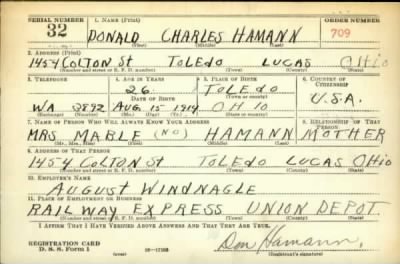 SERIAL NUMBER 1. NAME (Print) ORDER NUMBER
32 DONALD CHARLES HAMANN 709
(First) (Middle) (Last)
2. ADDRESS (Print)
1454 COLTON St TOLEDO LUCAS Ohio
(Number and street or R. F. D. number) (Town) (County) (State)
3. TELEPHONE 4. AGE IN YEARS 5. PLACE OF BIRTH 6. COUNTRY OF CITIZENSHIP
26 TOLEDO
DATE OF BIRTH (Town or county) U.S.A.
WA 2892 AUG. 15 1914 OHIO
(Exchange) (Number) (Mo.) (Day) (Yr.) (State or country)
7. NAME OF PERSON WHO WILL ALWAYS KNOW YOUR ADDRESS 8. RELATIONSHIP OF THAT PERSON
MRS. MABLE (NO) HAMANN MOTHER
(Mr., Mrs., Miss) (First) (Middle) (Last)
9. ADDRESS OF THAT PERSON
1454 COLTON St TOLEDO LUCAS Ohio
(Number and street or R. F. D. number) (Town) (County) (State)
10. EMPLOYER'S NAME
AUGUST WINDNAGLE
11. PLACE OF EMPLOYMENT OR BUSINESS
RAILWAY EXPRESS UNION DEPOT.
(Number and street or R. F. D. number) (Town) (County) (State)
I AFFIRM THAT I HAVE VERIFIED ABOVE ANSWERS AND THAT THEY ARE TRUE.
REGISTRATION CARD
D. S. S. Form 1 Don Hamann.
(Registrant's signature)